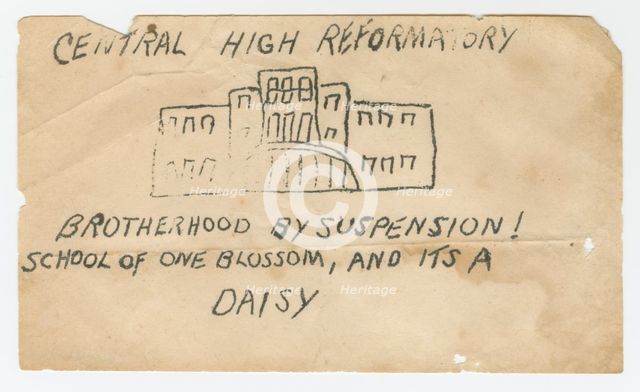 CENTRAL HIGH REFORMATORY
BROTHERHOOD BY SUSPENSION!
SCHOOL OF ONE BLOSSOM, AND ITS A
DAISY
Heritage Heritage
Heritage Heritage
Heritage Heritage
Heritage Heritage